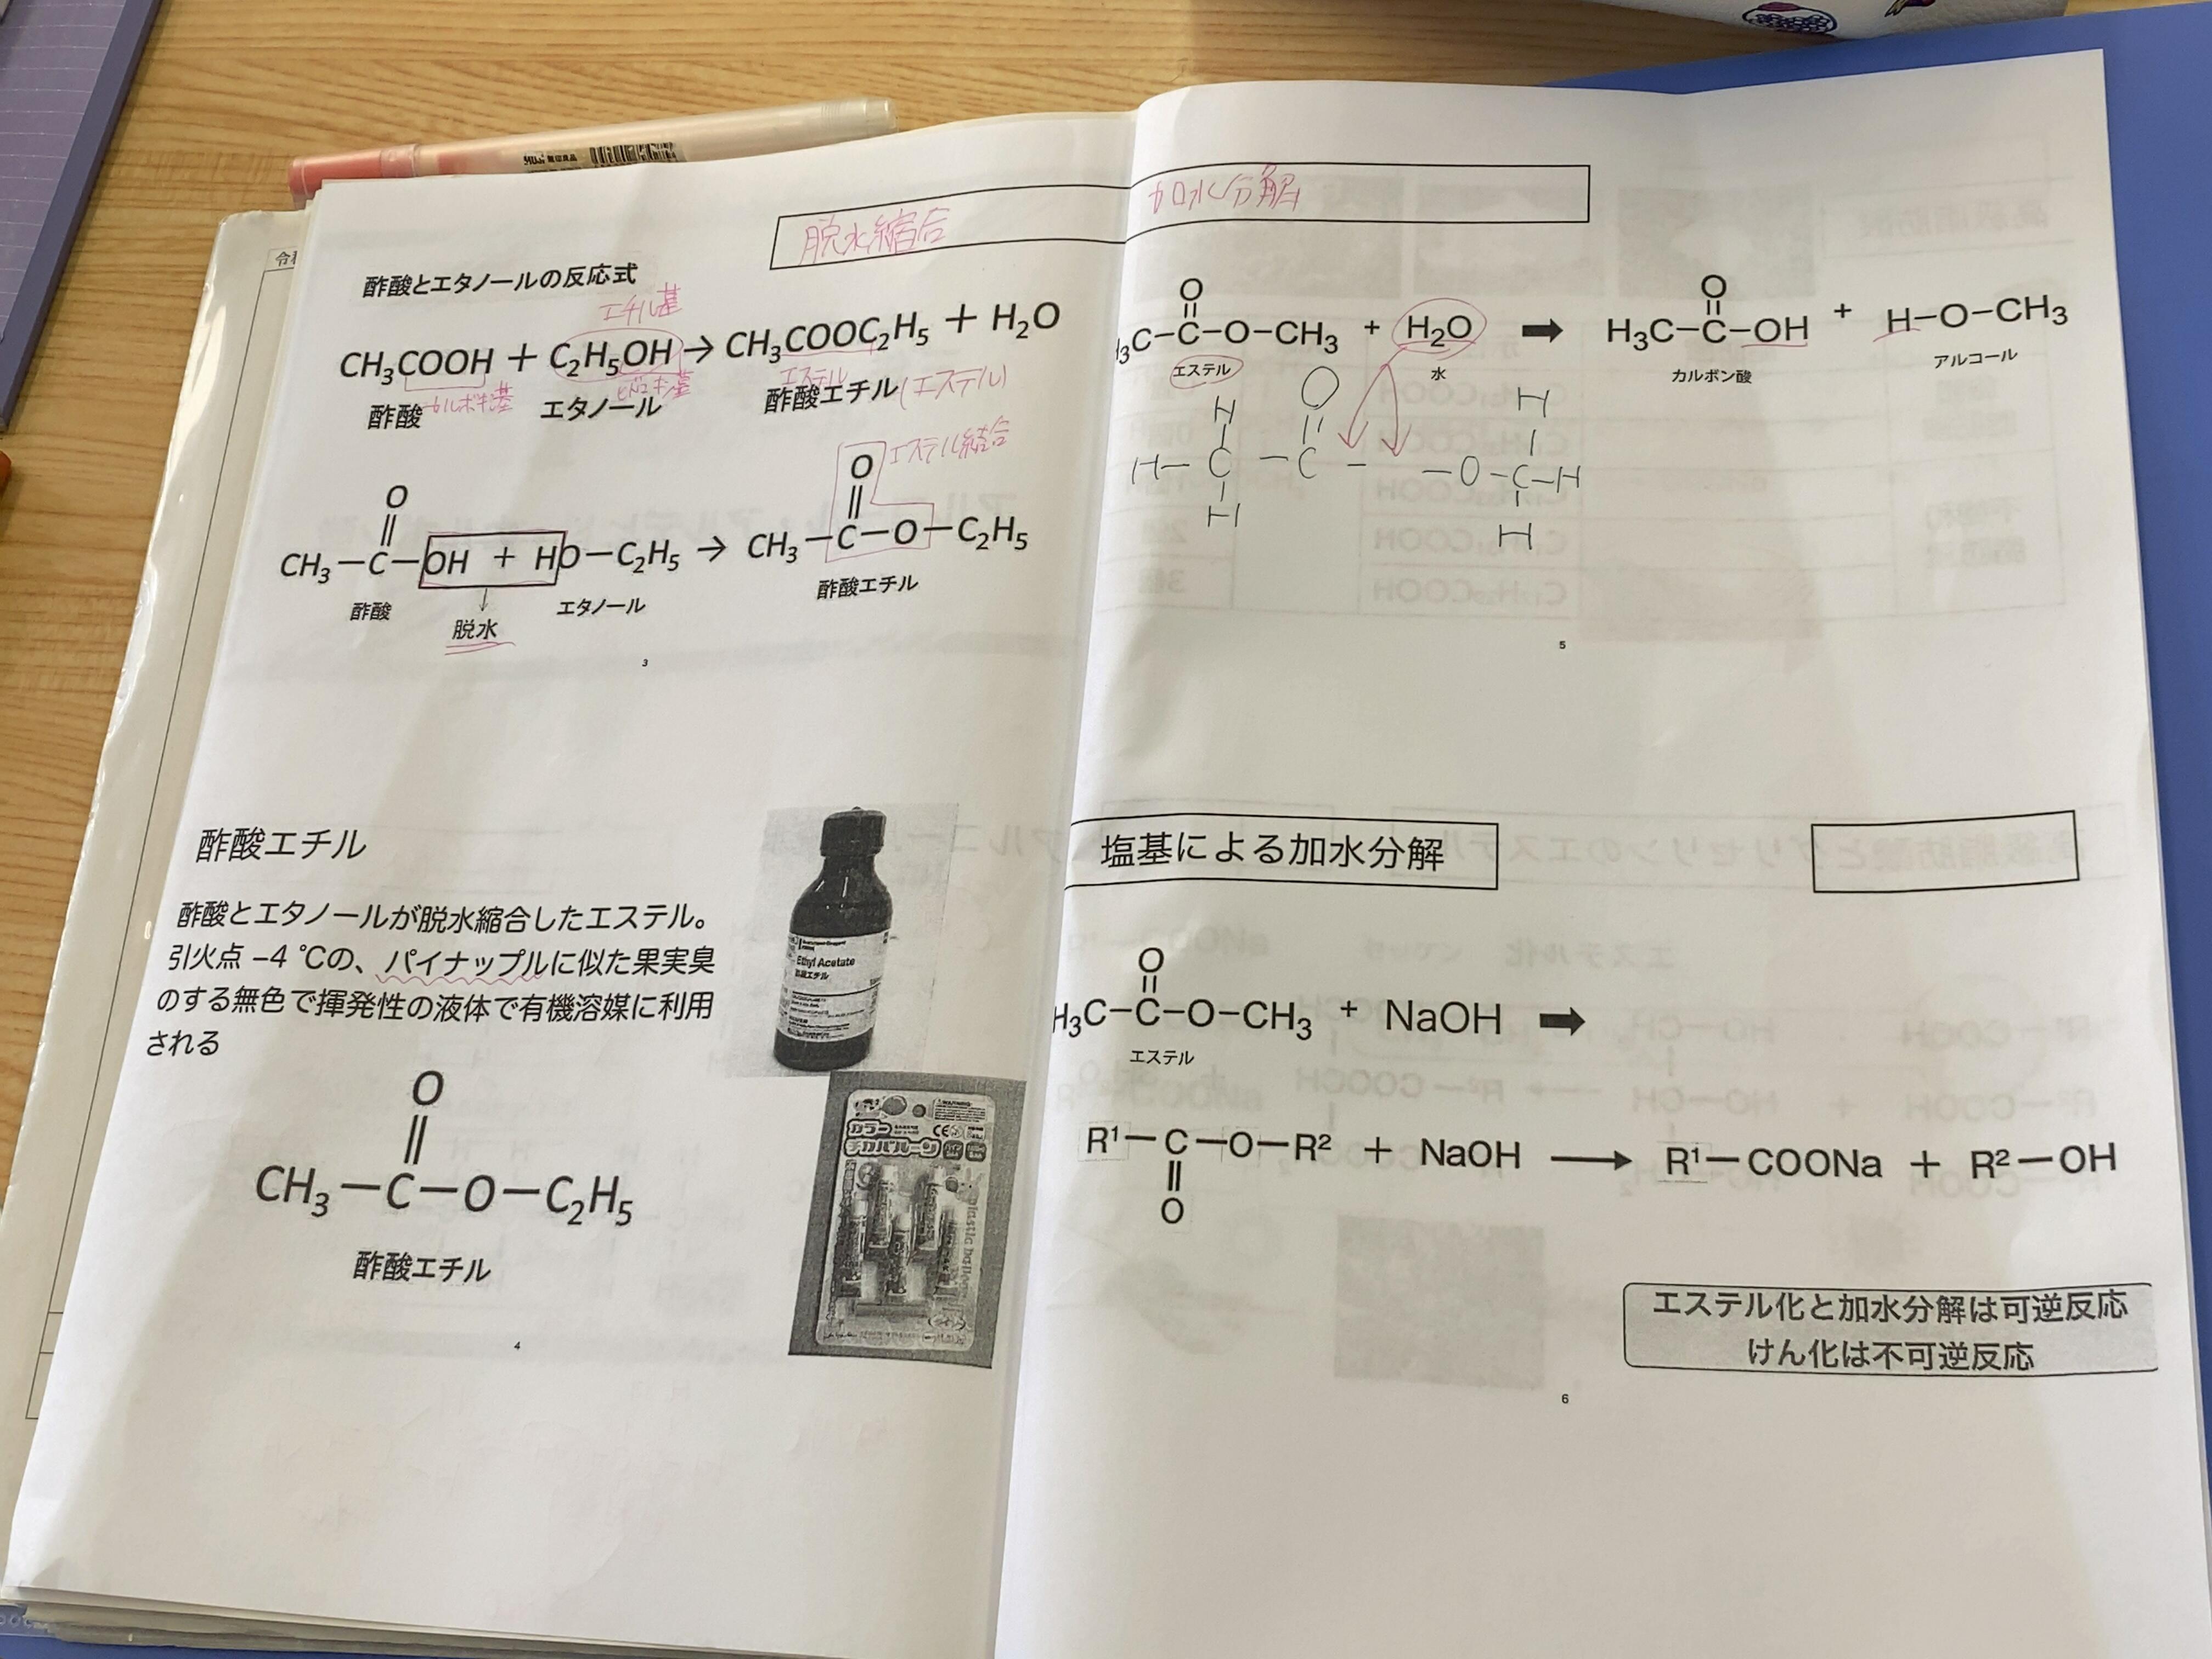 脱水縮合
酢酸とエタノールの反応式
エチル基
CH₃COOH + C₂H₅OH → CH₃COOC₂H₅ + H₂O
カルボキ基 ヒドロキ基 エステル
酢酸 エタノール 酢酸エチル (エステル)
エステル結合
O O
CH₃—C—OH + HO—C₂H₅ → CH₃—C—O—C₂H₅
酢酸 エタノール 酢酸エチル
脱水
3
酢酸エチル
酢酸とエタノールが脱水縮合したエステル。
引火点 –4 ℃の、パイナップルに似た果実臭
のする無色で揮発性の液体で有機溶媒に利用
される
Ethyl Acetate
酢酸エチル
カラー
チカバルーン
O
CH₃—C—O—C₂H₅
酢酸エチル
4
加水分解
O O
₃C—C—O—CH₃ + H₂O ➡ H₃C—C—OH + H—O—CH₃
エステル 水 カルボン酸 アルコール
H O H
H—C—C— —O—C—H
H H
5
塩基による加水分解
O
H₃C—C—O—CH₃ + NaOH ➡
エステル
R¹—C—O—R² + NaOH ⟶ R¹—COONa + R²—OH
O
エステル化と加水分解は可逆反応
けん化は不可逆反応
6